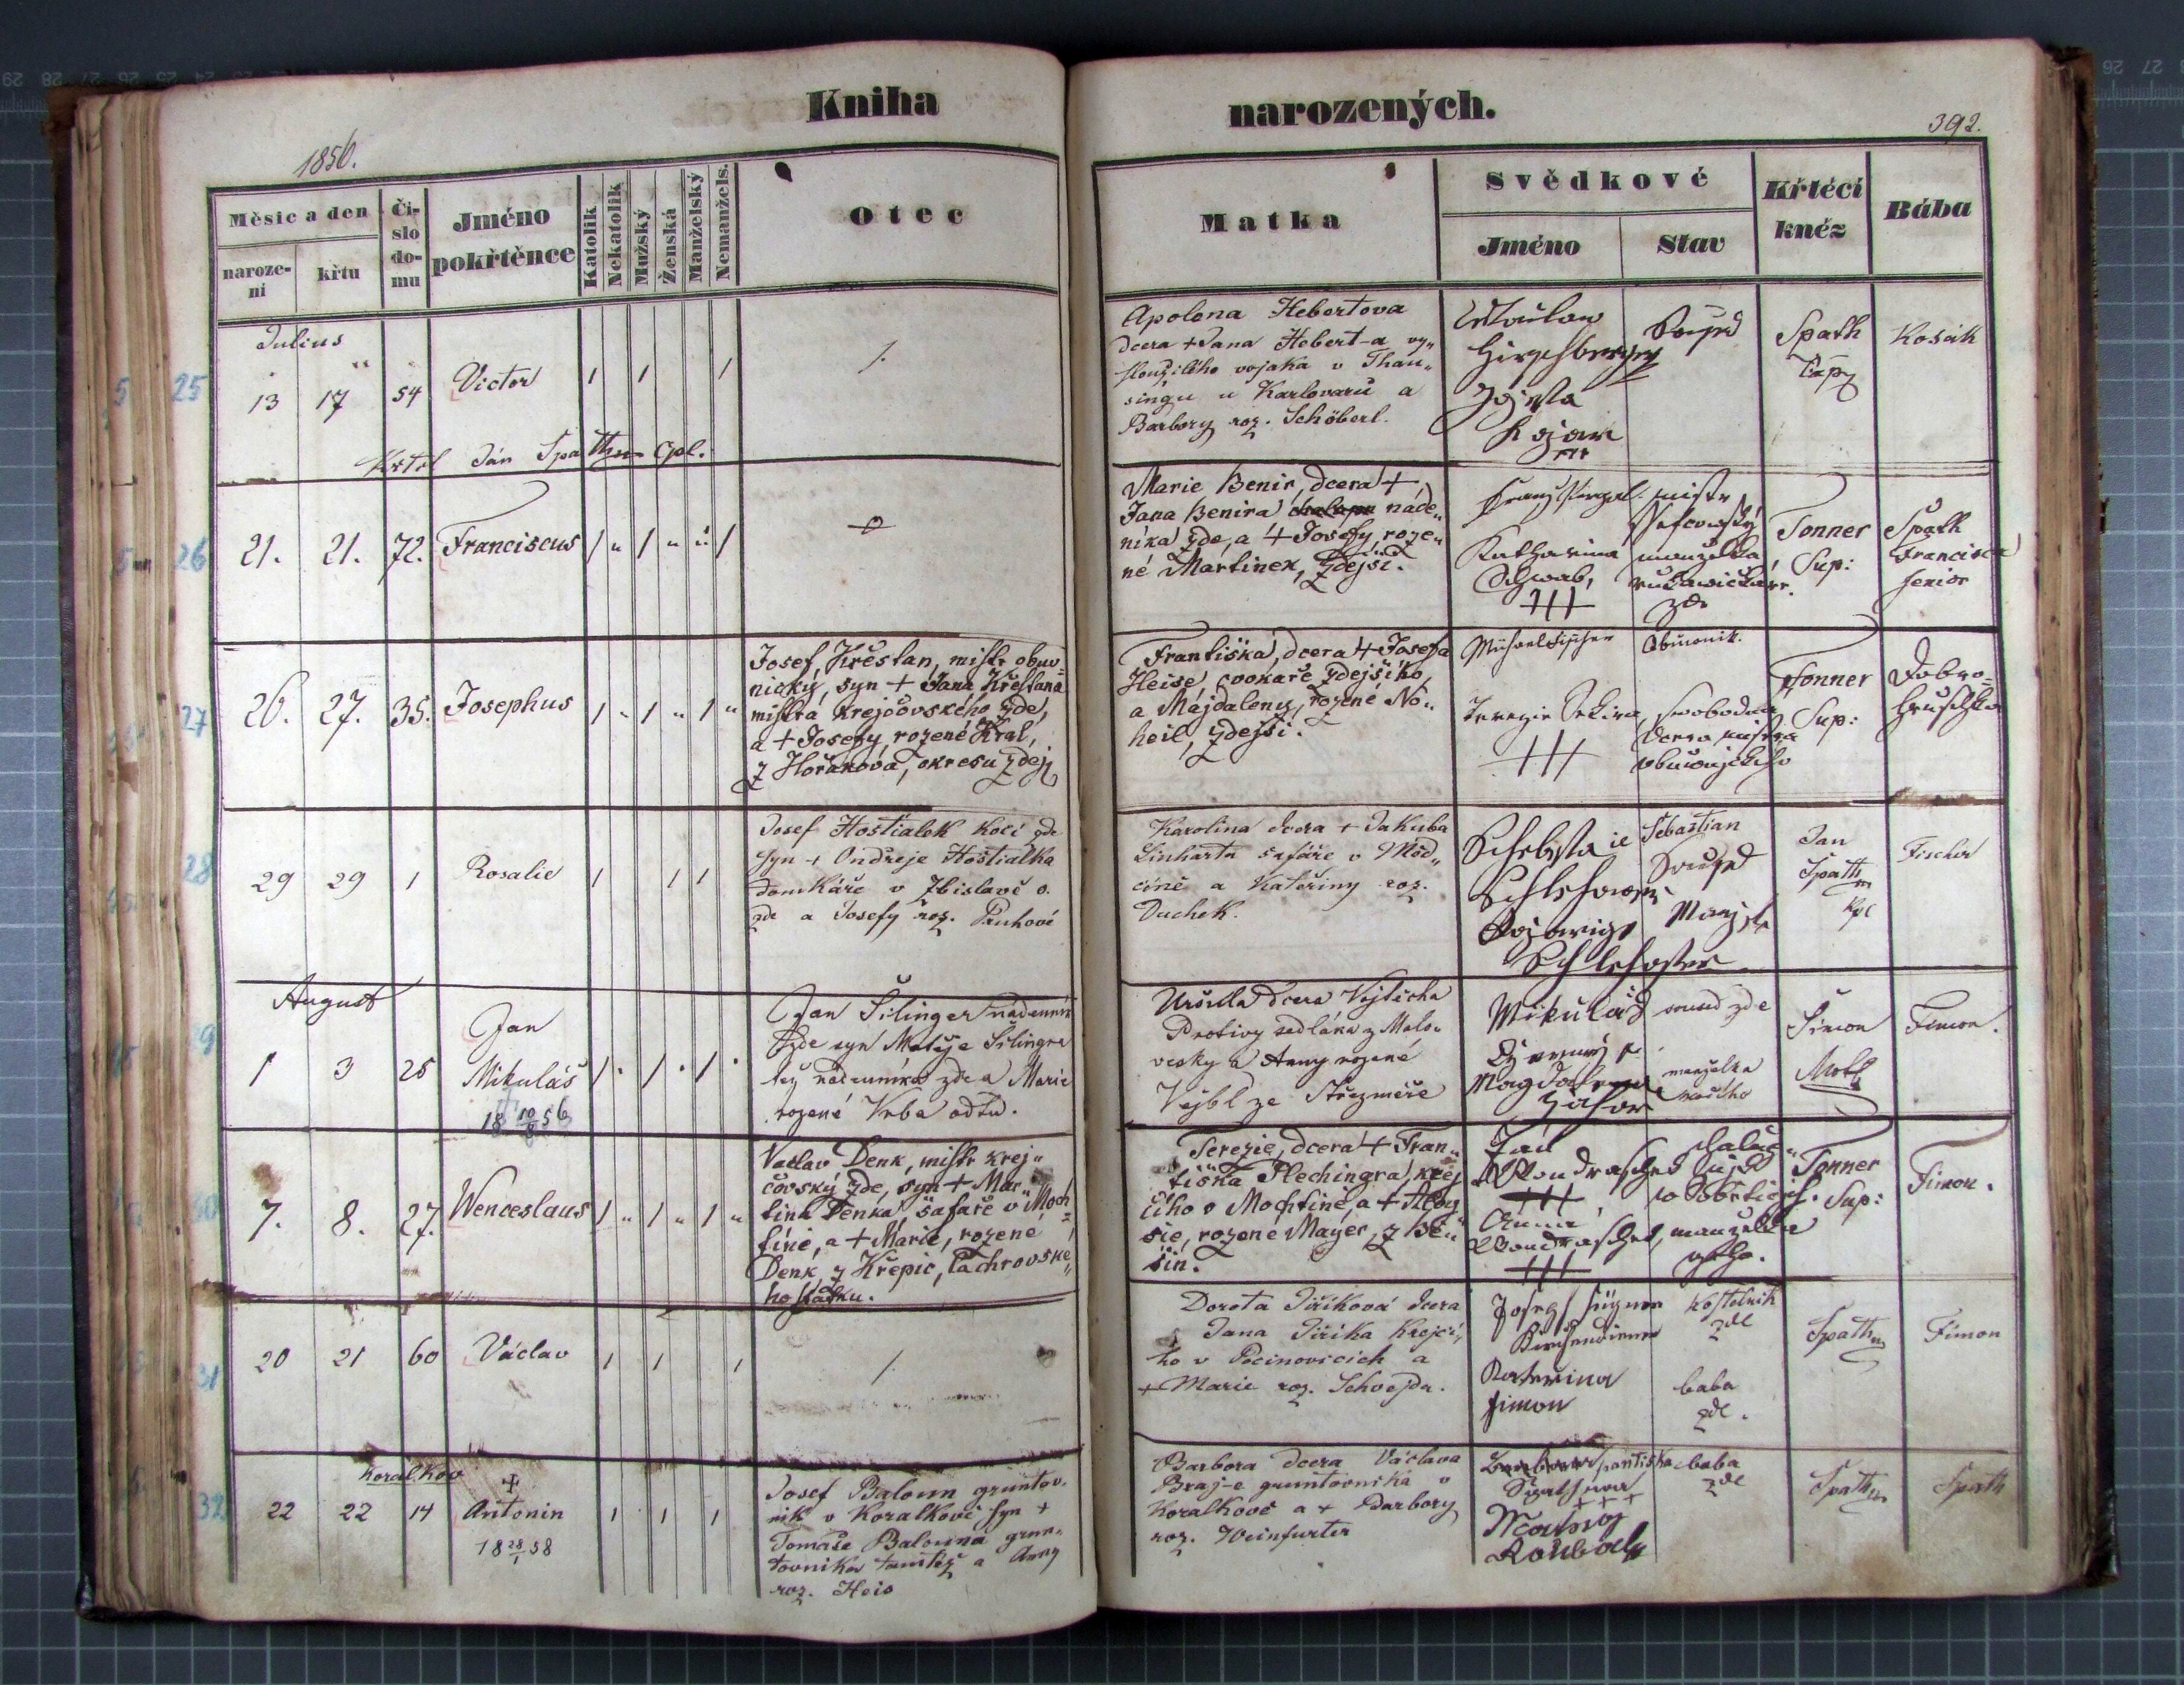 Kniha narozených.
1856.
392.
Měsíc a den
naroze-
ní
křtu
Čí-
slo
do-
mu
Jméno
pokřtěnce
Katolík
Nekatolík
Mužský
Ženská
Manželský
Nemanžels.
Otec
Matka
Svědkové
Jméno
Stav
Křtécí
kněz
Bába
Julius
25
13 17 54 Victor
Křtil Ján Spath Cpl.
Apolena Hebertova
dcera + Jana Hebert-a vy„
sloužilého vojáka v Thau„
singu u Karlovarů a
Barbory roz. Schöberl.
Soused
Spath
Kosák
26
21. 21. 72. Franciscus
Marie Benir, dcera +
Jana Benira náde„
níka zde, a + Josefy, roze„
né Martinek, zdejší.
Katharina
Schwab,
+++
manželka
zde
Tonner
Sup:
Spath
Francisca
senior
27
26. 27. 35. Josephus
Josef, Křestan, mistr obuv„
nický, syn + Jana Křestana
mistra krejčovského zde,
a + Josefy, rozené Král,
z Hořakova, okresu zdej
Františka, dcera + Josefa
Heise, cvokaře zdejšího,
a Majdaleny, rozené No„
heil, zdejší.
Michael Fischer
Obuvnik.
Terezie Sekira,
+++
svobodna
dcera mistra
obuvnického
Tonner
Sup:
Dobro=
hruschka
28
29 29 1 Rosalie
Josef Hostialek kočí zde
syn + Ondřeje Hostialka
domkáře v Zbislavě o.
zde a Josefy roz. Pruhové
Karolina dcera + Jakuba
Linharta šafáře v Mod„
cíně a Kateřiny roz.
Duchek.
Sebastian
Soused
Jan
Spath
Kpl
Fischer
August
1 3 25 Jan
Mikuláš
18 10/8 56
Jan Šilinger nádenník
zde syn Matěje Šilingra
též nádenníka zde a Marie
rozené Vrba odtud.
Uršilla dcera Vojtěcha
Protivy sedláka z Malo„
vesky a Anny rozené
Vejbl ze Střezměře
Mikuláš
soused zde
Magdalena
manželka
Šimon
Motl
Fimon.
7. 8. 27. Wenceslaus
Václav Denk, mistr krej„
čovský zde, syn + Mar„
tina Denka šafáře v Moch„
tíně, a + Marie, rozené
Denk z Křepic, Lachrovské„
ho statku.
Terezie, dcera + Fran„
tiška Plechingra, krej
čího v Mochtíně, a + Aloy
sie, rozené Mayer, z Be„
šin.
Jan
Wondraschek
+++
Anna
Wondraschek, manželka
+++
Tonner
Sup:
Fimon.
31
20 21 60 Václav
Dorota Jiříková dcera
Jana Jiříka Krejčí„
ho v Pocinovicích a
+ Marie roz. Schvejda.
Josef
Kirchendiener
kostelník
zde
Kateřina
Fimon
baba
zde.
Spath
Fimon
32
Korálkov
22 22 14 + Antonin
18 28/1 58
Josef Baloun gruntov.
nik v Koralkově syn +
Tomáše Balouna grun„
tovníka tamtéž a Anny
roz. Heis
Barbora dcera Václava
Braj-e gruntovníka v
Koralkově a + Barbory
roz. Weinfurter
Františka
+++
baba
zde
Spath
Spath